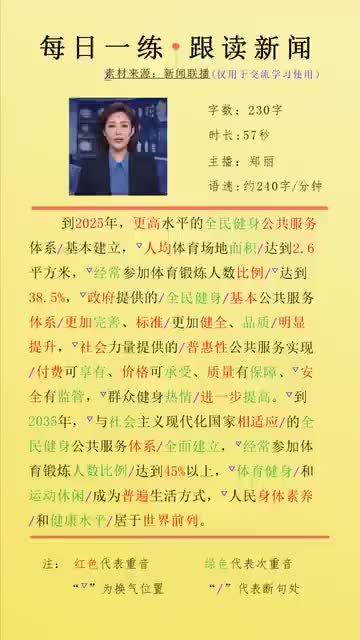 每日一练•跟读新闻
素材来源：新闻联播(仅用于交流学习使用)
字数：230字
时长:57秒
主播：郑丽
语速:约240字/分钟
到2025年，更高水平的全民健身公共服务
体系/基本建立，▽人均体育场地面积/达到2.6
平方米，▽经常参加体育锻炼人数比例/▽达到
38.5%，▽政府提供的/全民健身/基本公共服务
体系/更加完善、标准/更加健全、品质/明显
提升，▽社会力量提供的/普惠性公共服务实现
/付费可享有、价格可承受、质量有保障、▽安
全有监管，▽群众健身热情/进一步提高。▽到
2035年，▽与社会主义现代化国家相适应/的全
民健身公共服务体系/全面建立，▽经常参加体
育锻炼人数比例/达到45%以上，▽体育健身/和
运动休闲/成为普遍生活方式，▽人民身体素养
/和健康水平/居于世界前列。
注： 红色代表重音 绿色代表次重音
“▽”为换气位置 “/”代表断句处